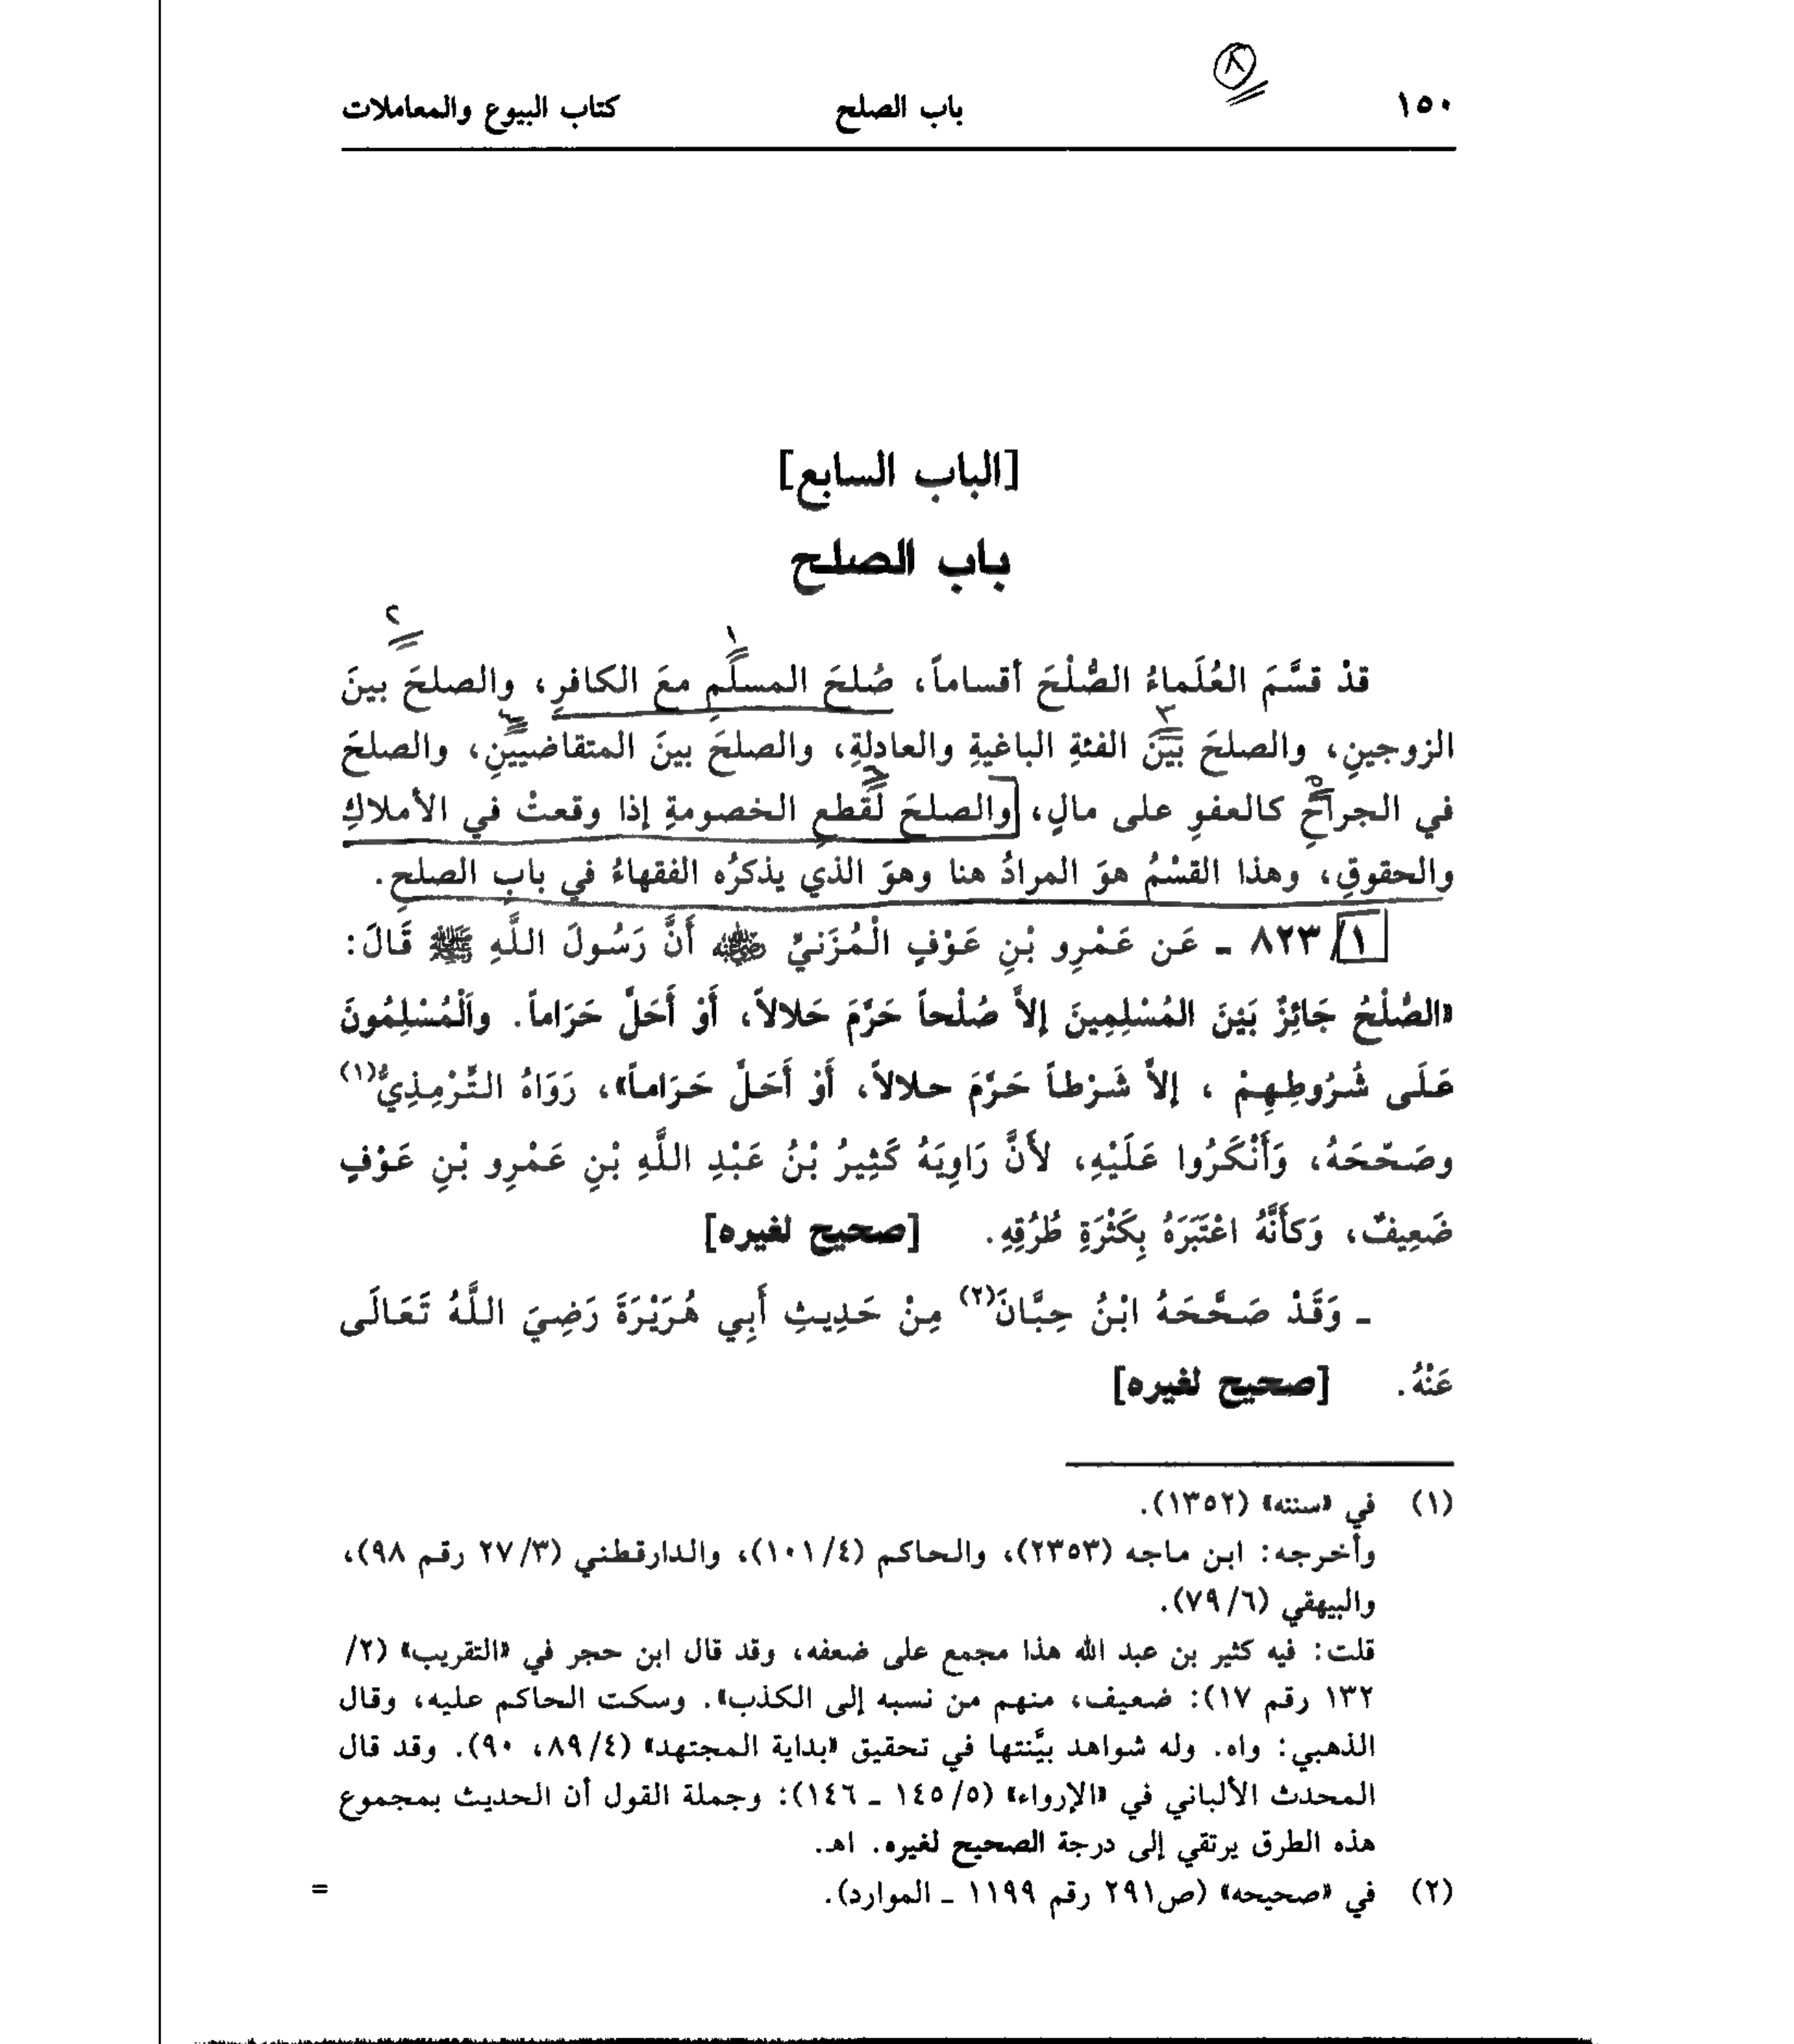 ١٥٠ باب الصلح كتاب البيوع والمعاملات
٨
[الباب السابع]
باب الصلح
قدْ قسَّمَ العُلَماءُ الصُّلْحَ أقساماً، صُلحَ المسلمِ معَ الكافرِ، والصلحَ بينَ
الزوجينِ، والصلحَ بينَ الفئةِ الباغيةِ والعادلةِ، والصلحَ بينَ المتقاضيينِ، والصلحَ
في الجراحِ كالعفوِ على مالٍ، والصلحَ لقطعِ الخصومةِ إذا وقعتْ في الأملاكِ
والحقوقِ، وهذا القسْمُ هوَ المرادُ هنا وهوَ الذي يذكرُه الفقهاءُ في بابِ الصلحِ.
١/ ٨٢٣ ـ عَن عَمْرِو بْنِ عَوْفٍ الْمُزَنيِّ رضي الله عنه أَنَّ رَسُولَ اللَّهِ ﷺ قَالَ:
«الصُّلْحُ جَائِزٌ بَيْنَ المُسْلِمِينَ إلاَّ صُلْحاً حَرَّمَ حَلالاً، أَوْ أَحَلَّ حَرَاماً. واَلْمُسْلِمُونَ
عَلَى شُرُوطِهِمْ ، إلاَّ شَرْطاً حَرَّمَ حلالاً، أَوْ أَحَلَّ حَرَاماً»، رَوَاهُ التِّرْمِذِيُّ(١)
وصَحّحَهُ، وَأَنْكَرُوا عَلَيْهِ، لأَنَّ رَاوِيَهُ كَثِيرُ بْنُ عَبْدِ اللَّهِ بْنِ عَمْرِو بْنِ عَوْفٍ
ضَعِيفٌ، وَكأَنَّهُ اعْتَبَرَهُ بِكَثْرَةِ طُرُقِهِ. [صحيح لغيره]
ـ وَقَدْ صَحَّحَهُ ابْنُ حِبَّانَ(٢) مِنْ حَدِيثِ أَبِي هُرَيْرَةَ رَضِيَ اللَّهُ تَعَالَى
عَنْهُ. [صحيح لغيره]
(١) في «سننه» (١٣٥٢).
وأخرجه: ابن ماجه (٢٣٥٣)، والحاكم (٤/ ١٠١)، والدارقطني (٣/ ٢٧ رقم ٩٨)،
والبيهقي (٦/ ٧٩).
قلت: فيه كثير بن عبد الله هذا مجمع على ضعفه، وقد قال ابن حجر في «التقريب» (٢/
١٣٢ رقم ١٧): ضعيف، منهم من نسبه إلى الكذب». وسكت الحاكم عليه، وقال
الذهبي: واه. وله شواهد بيَّنتها في تحقيق «بداية المجتهد» (٤/ ٨٩، ٩٠). وقد قال
المحدث الألباني في «الإرواء» (٥/ ١٤٥ ـ ١٤٦): وجملة القول أن الحديث بمجموع
هذه الطرق يرتقي إلى درجة الصحيح لغيره. اهـ.
(٢) في «صحيحه» (ص٢٩١ رقم ١١٩٩ ـ الموارد). =